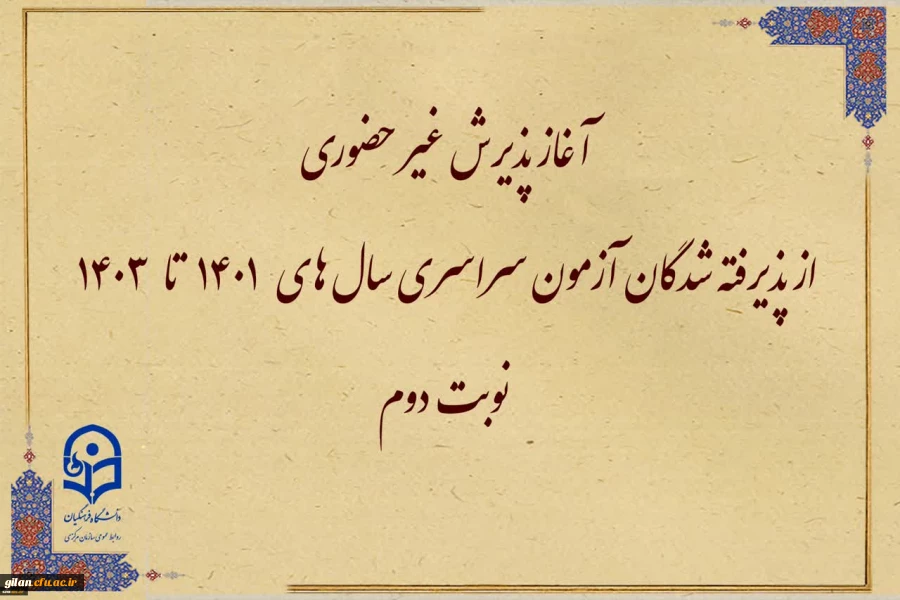 آغاز پذیرش غیر حضوری
از پذیرفته شدگان آزمون سراسری سال های ۱۴۰۱ تا ۱۴۰۳
نوبت دوم
دانشگاه فرهنگیان
روابط عمومی سازمان مرکزی
gilan.cfu.ac.ir